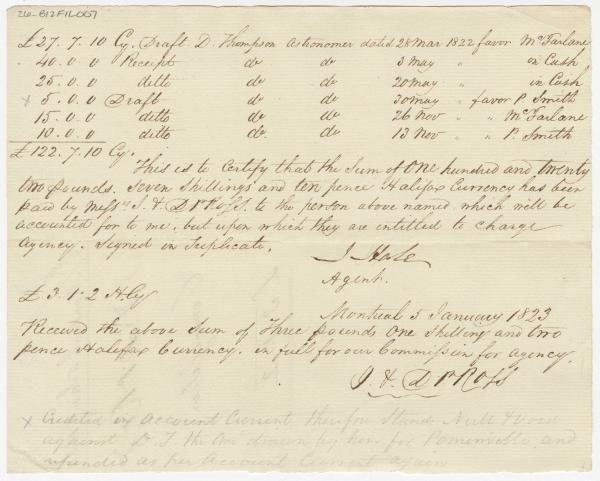 26-B12F1L007
£27. 7. 10 Cy. Draft D. Thompson Astronomer dated 28 Mar 1822 favor McFarlane
40. 0. 0 Receipt do do 3 May " in Cash
25. 0. 0 ditto do do 20 May " in Cash
x 5. 0. 0 Draft do do 30 May " favor P. Smith
15. 0. 0 ditto do do 26 Nov " " McFarlane
10. 0. 0 ditto do do 13 Nov " " P. Smith
£122. 7. 10 Cy.
This is to Certify that the Sum of One hundred and twenty
two pounds. Seven Shillings and ten pence Halifax Currency has been
paid by Messrs J. & D Ross. to the person above named which will be
accounted for to me, but upon which they are entitled to charge
Agency. Signed in Duplicate.
J Hale
Agent.
£3. 1. 2 H. Cy
Montreal 5 January 1823
Received the above Sum of Three pounds One Shilling and two
pence Halifax Currency. in full for our Commission for Agency.
J. & D Ross
x Credited in Account Current therefore Stands Null & Void
against D. T. the drawn by him for and
refunded as per Account Current again